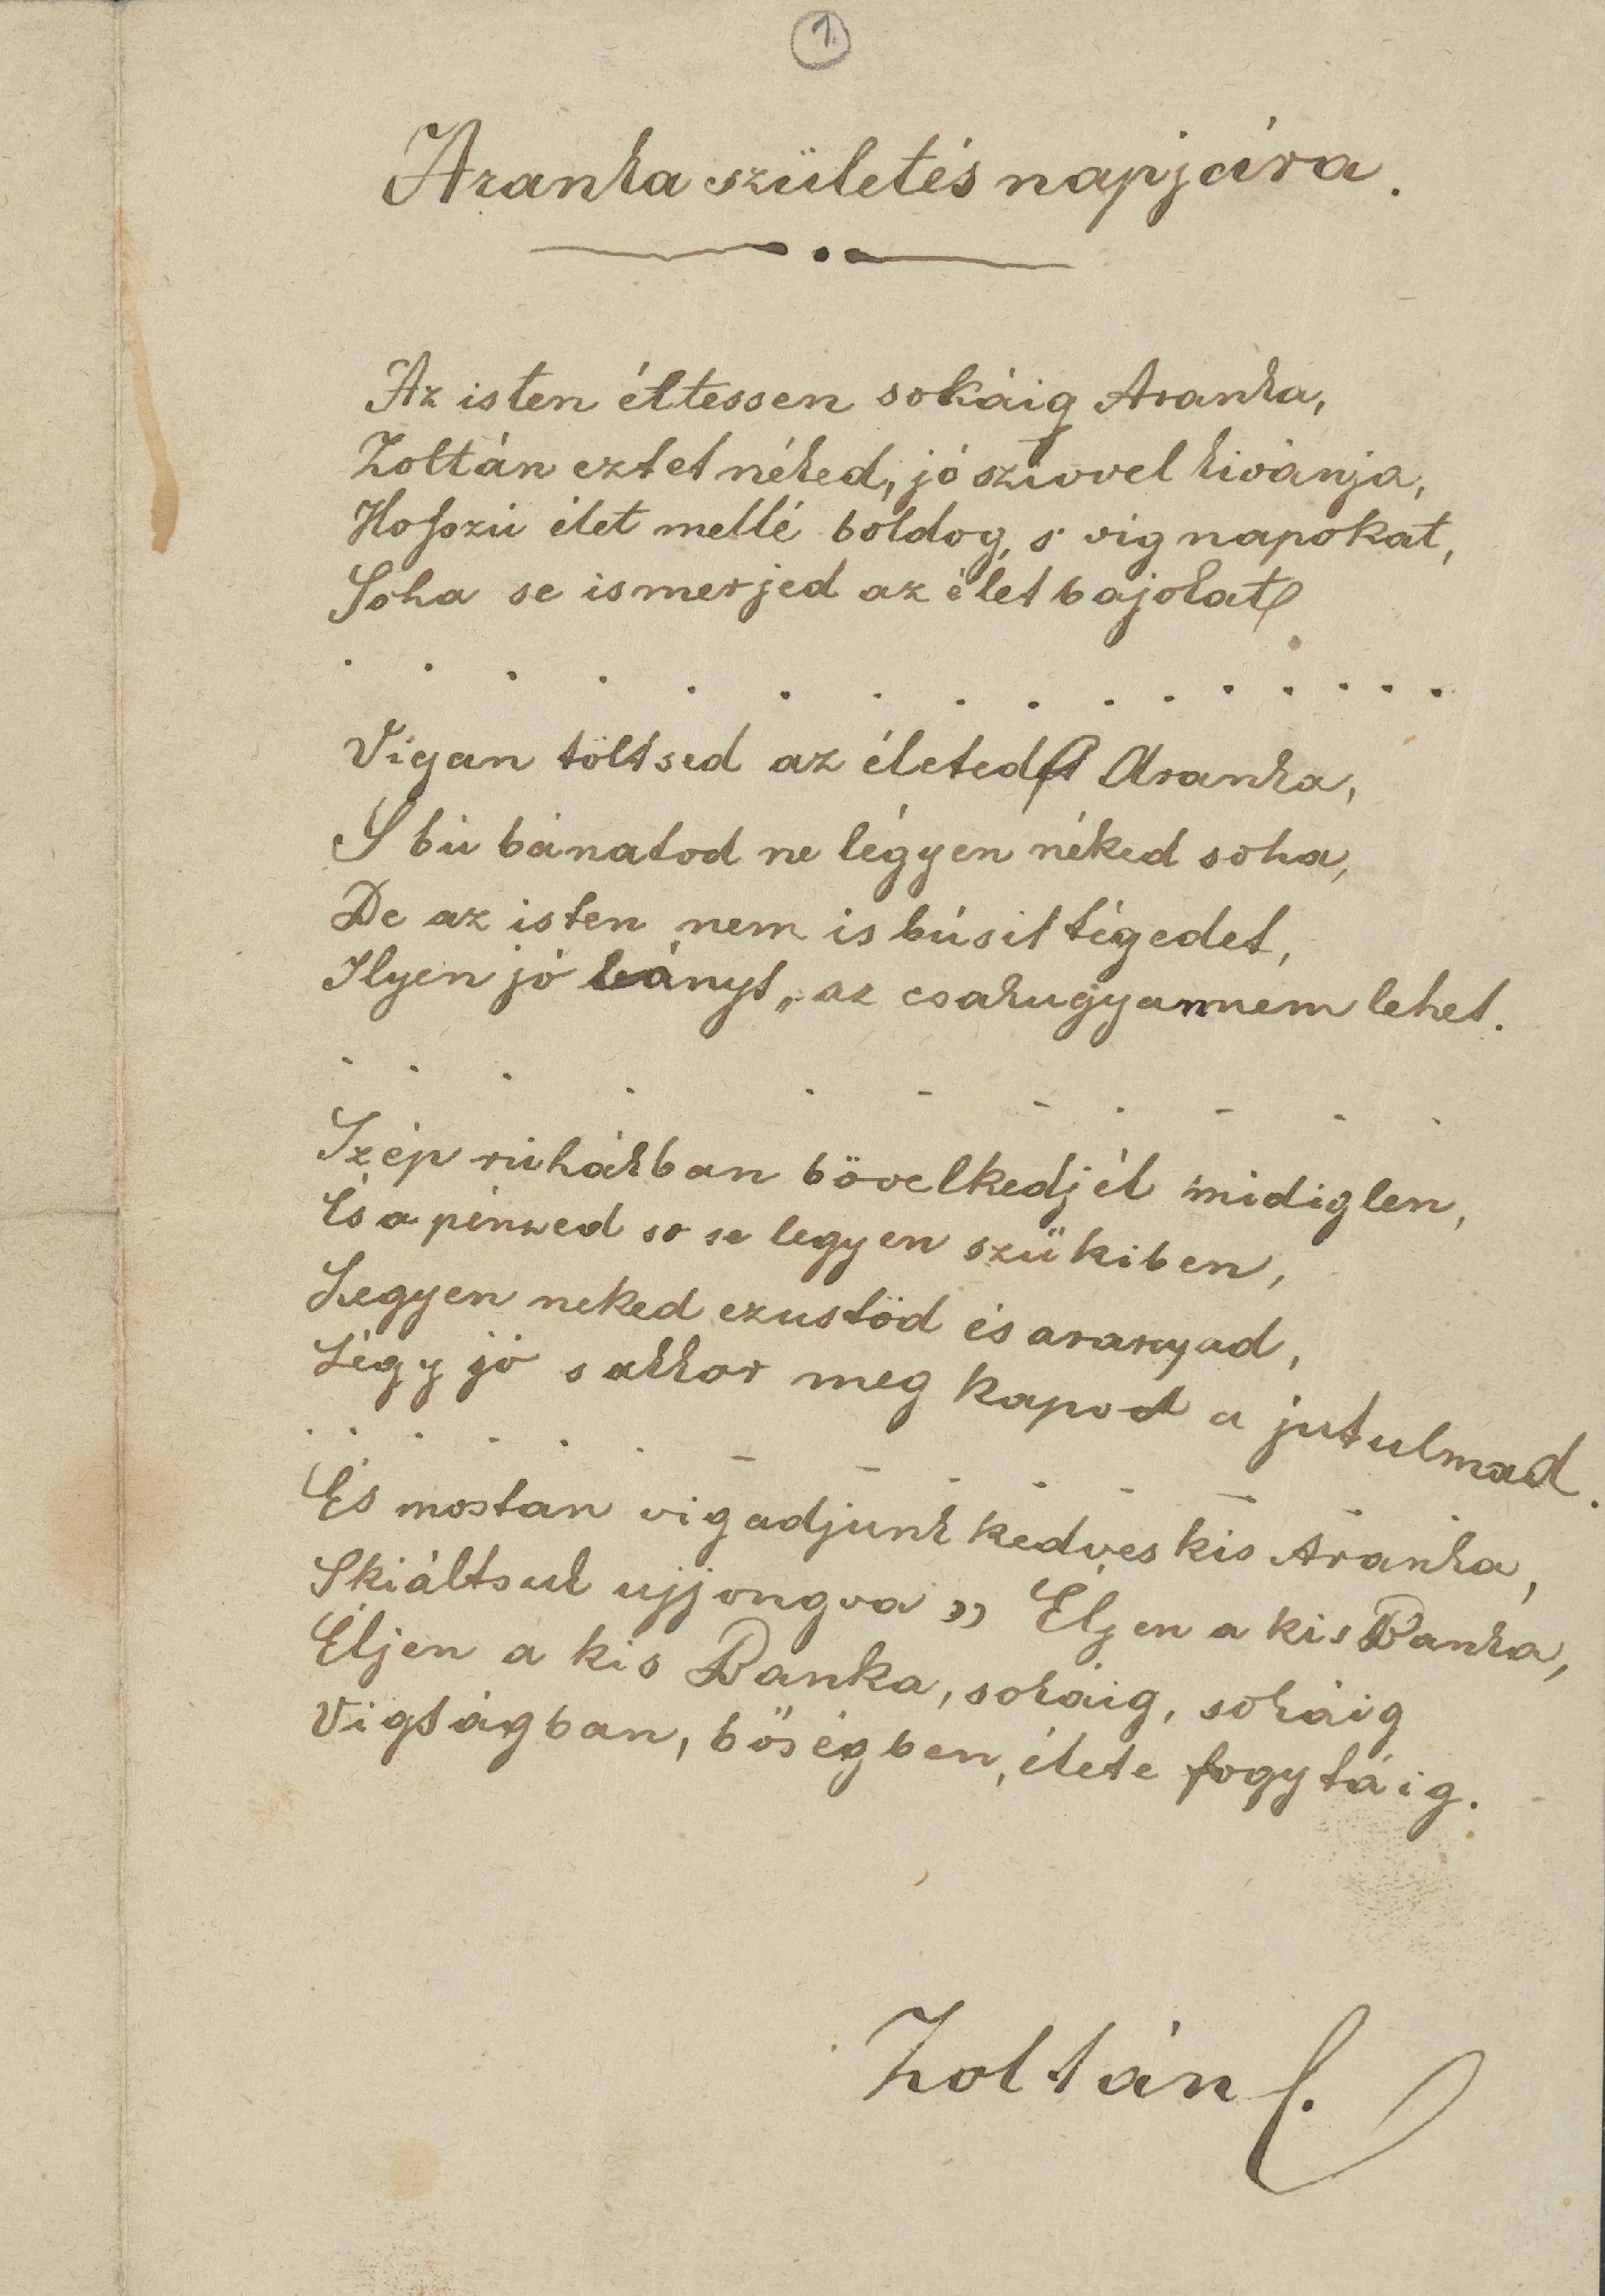 1.
Aranka születés napjára.
Az isten éltessen sokáig Aranka,
Zoltán eztet néked, jó szívvel kivánja,
Hoſszú élet mellé boldog, s vig napokat,
Soha se ismerjed az élet bajokat
. . . . . . . . . . . . . . . . . .
Vigan töltsed az életed Aranka,
S bú bánatod ne légyen néked soha,
De az isten nem is búsit tégedet,
Ilyen jó lányt, az csakugyan nem lehet.
. . . . . . . . . . . .
Szép ruhákban bövelkedjél midiglen,
És a pénzed so se legyen szükiben,
Legyen neked ezustöd és aranyad,
Légy jó s akkor meg kapod a jutulmad.
. . . . . . . . . . . . .
És mostan vigadjunk kedves kis Aranka,
S kiáltsuk ujjongva „ Éljen a kis Banka,
Éljen a kis Banka, sokáig, sokáig
Vigságban, bőségben, élete fogytáig.
Zoltán